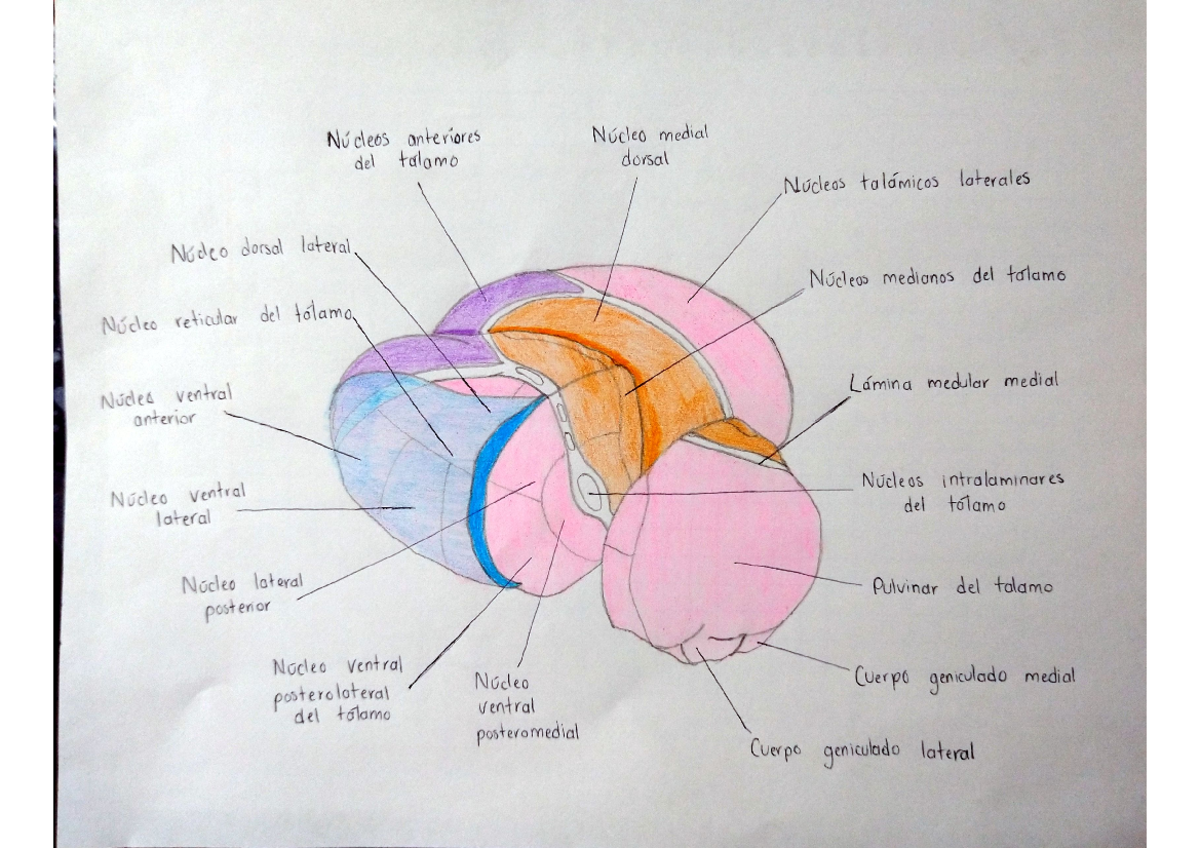 Núcleos anteriores
del tálamo
Núcleo medial
dorsal
Núcleos talámicos laterales
Núcleo dorsal lateral
Núcleos medianos del tálamo
Núcleo reticular del tálamo
Núcleo ventral
anterior
Lámina medular medial
Núcleo ventral
lateral
Núcleos intralaminares
del tálamo
Núcleo lateral
posterior
Pulvinar del talamo
Núcleo ventral
posterolateral
del tálamo
Núcleo
ventral
posteromedial
Cuerpo geniculado medial
Cuerpo geniculado lateral